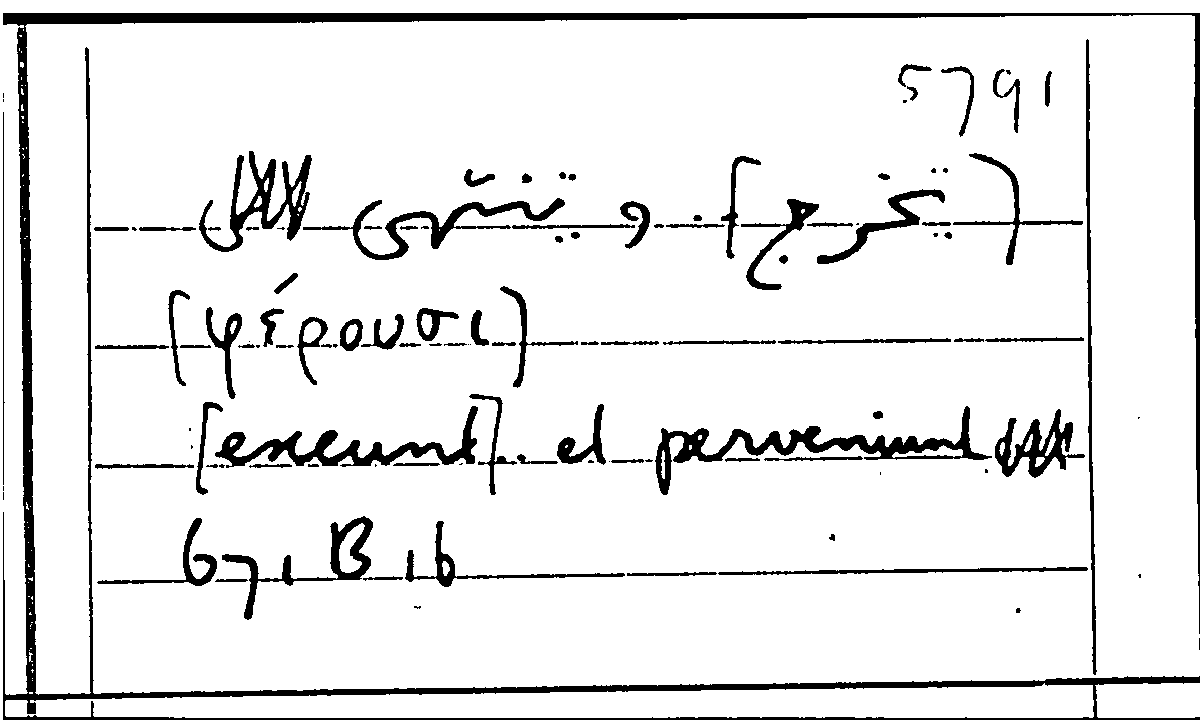 5791
(تخرج) .. و ينتهى
(φέρουσι)
[exeunt].. et perveniunt
671 B 16